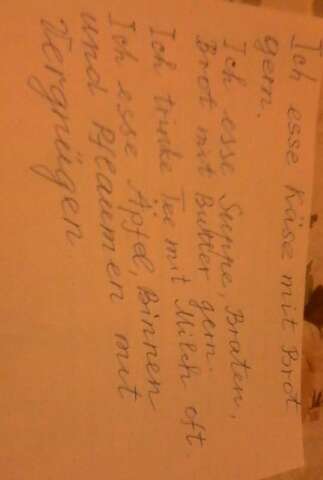 Ich esse Käse mit Brot
gern.
Ich esse Suppe, Braten,
Brot mit Butter gern.
Ich trinke Tee mit Milch oft.
Ich esse Äpfel, Binnen
und Pflaumen mit
Vergnügen